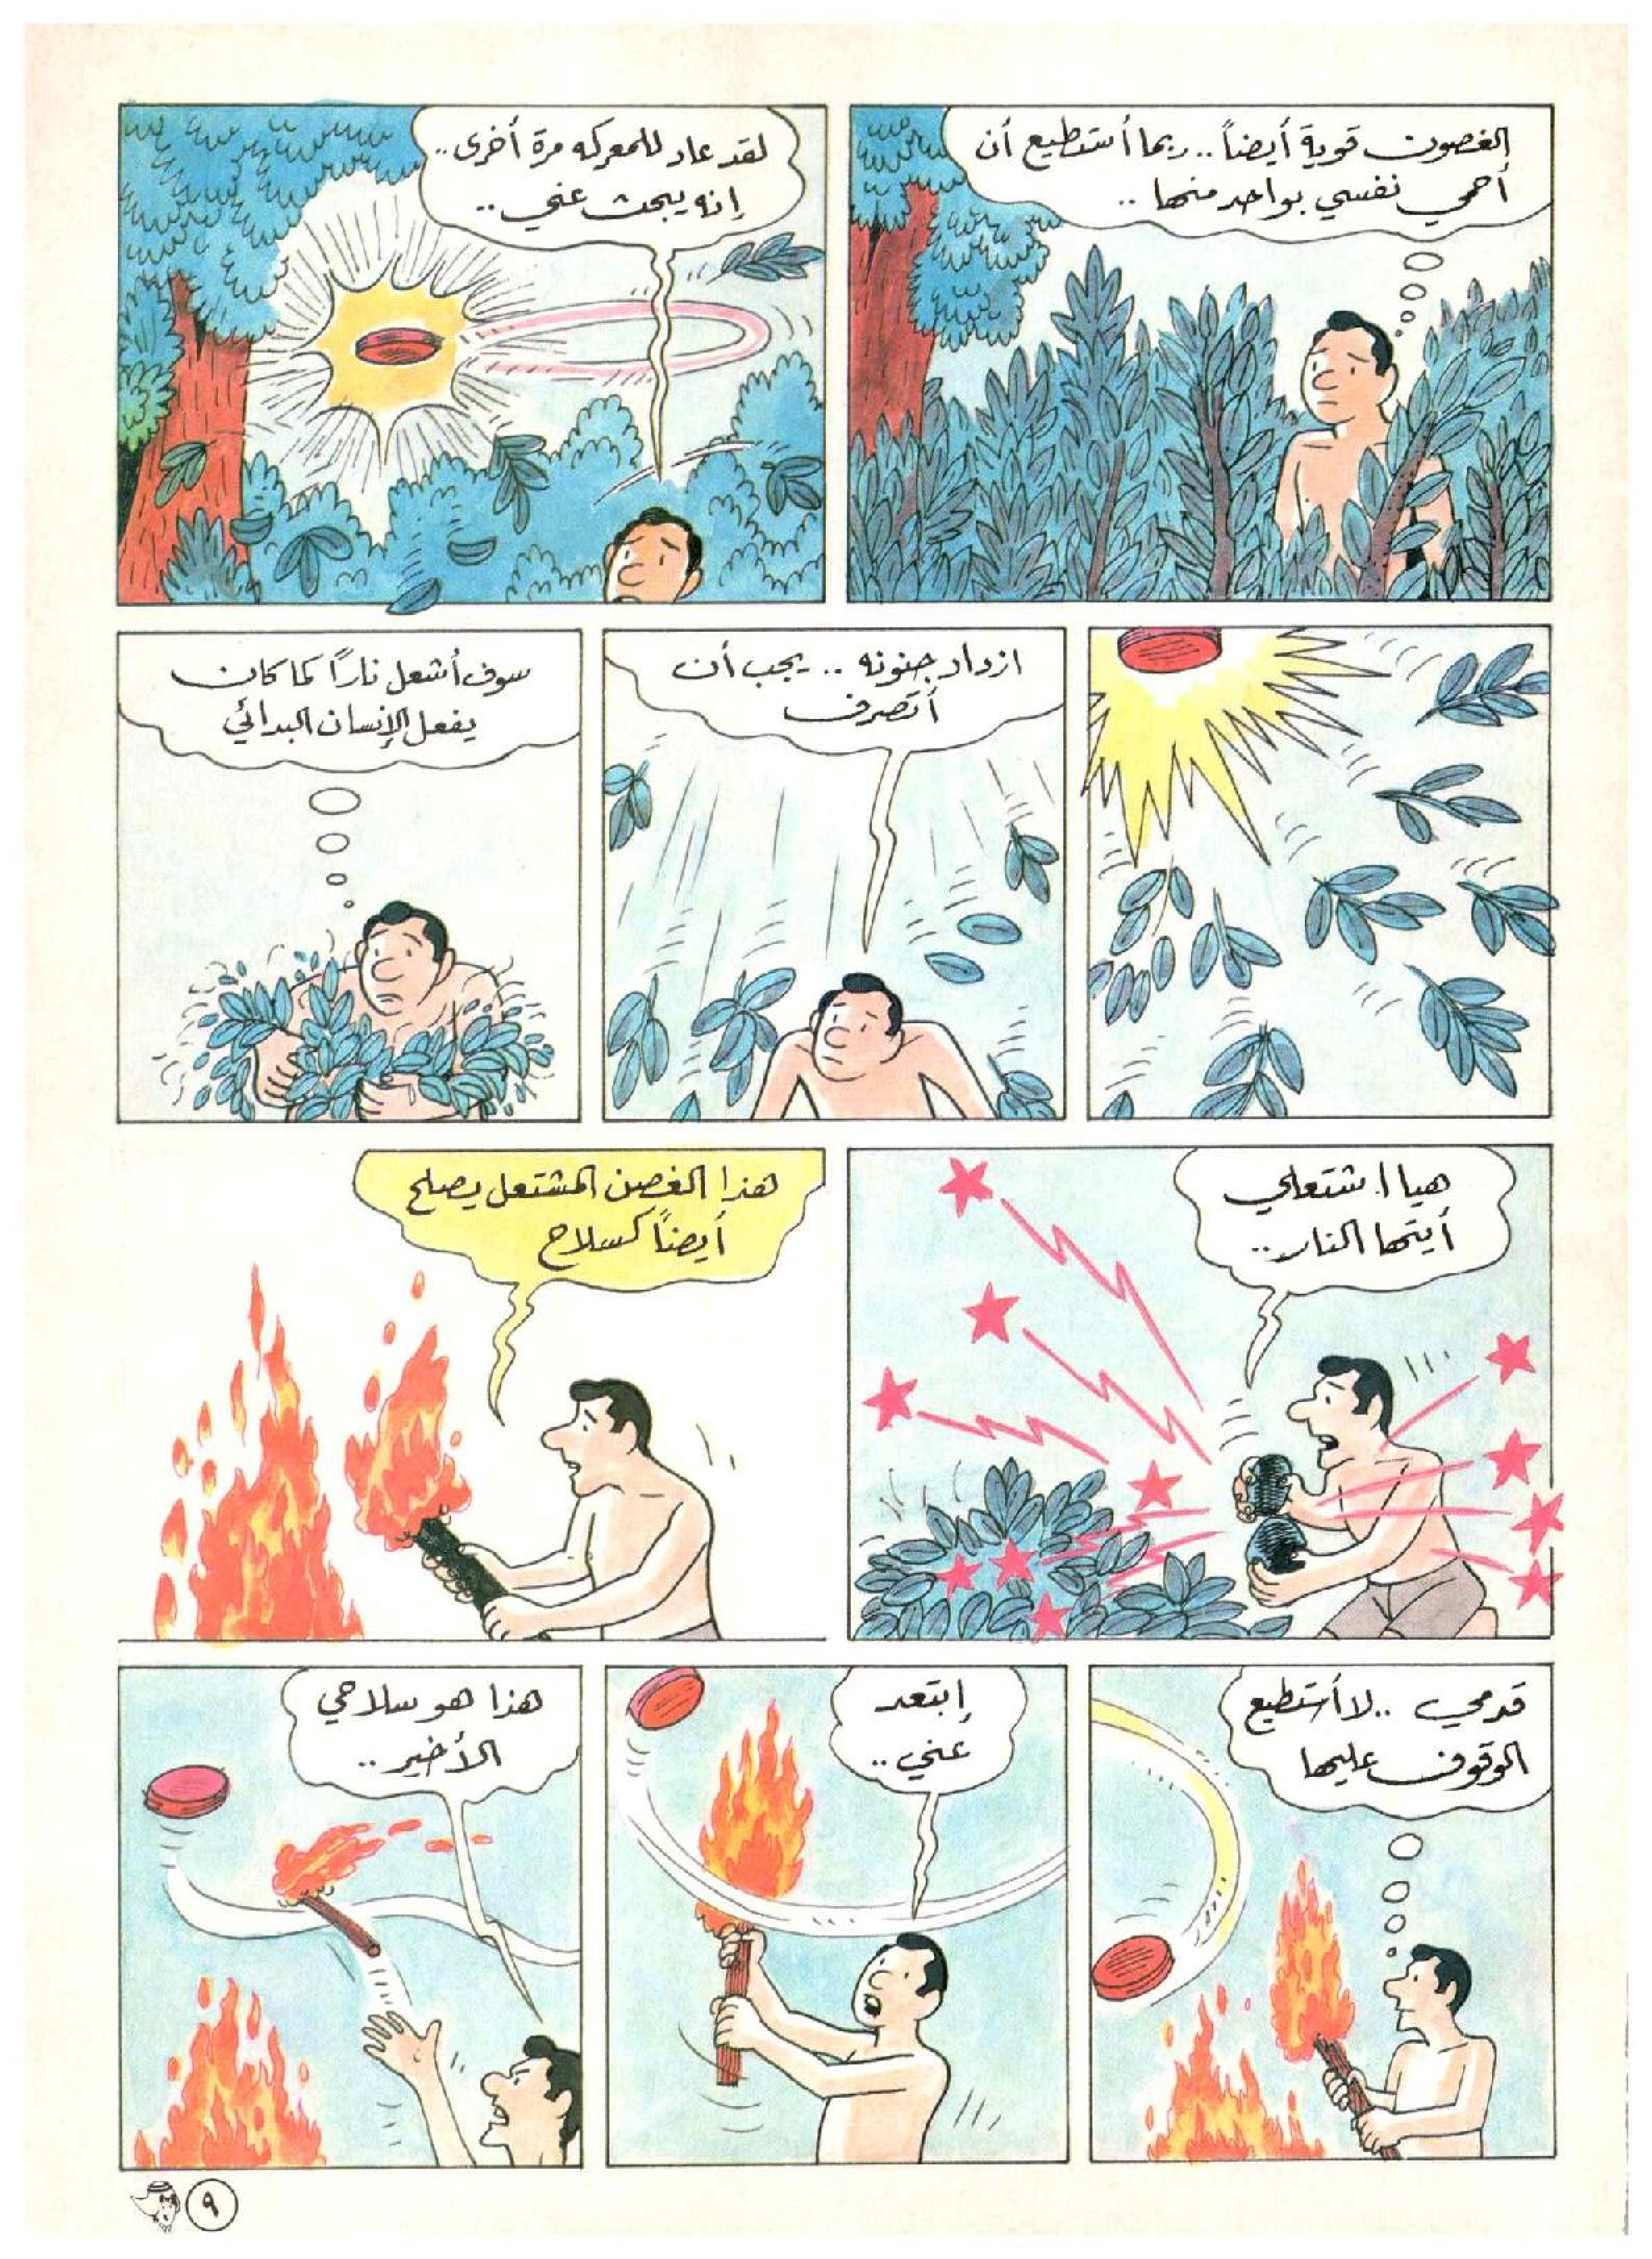 الغصون قوية أيضاً.. ربما أستطيع أن
أحمي نفسي بواحد منها..
لقد عاد للمعركه مرة أخرى..
إنه يبحث عني..
ازداد جنونه.. يجب أن
أتصرف
سوف أشعل ناراً كما كان
يفعل الإنسان البدائي
هيا اشتعلي
أيتها النار..
هذا الغصن المشتعل يصلح
أيضاً كسلاح
قدمي.. لا أستطيع
الوقوف عليها
إبتعد
عني..
هذا هو سلاحي
الأخير..
٩